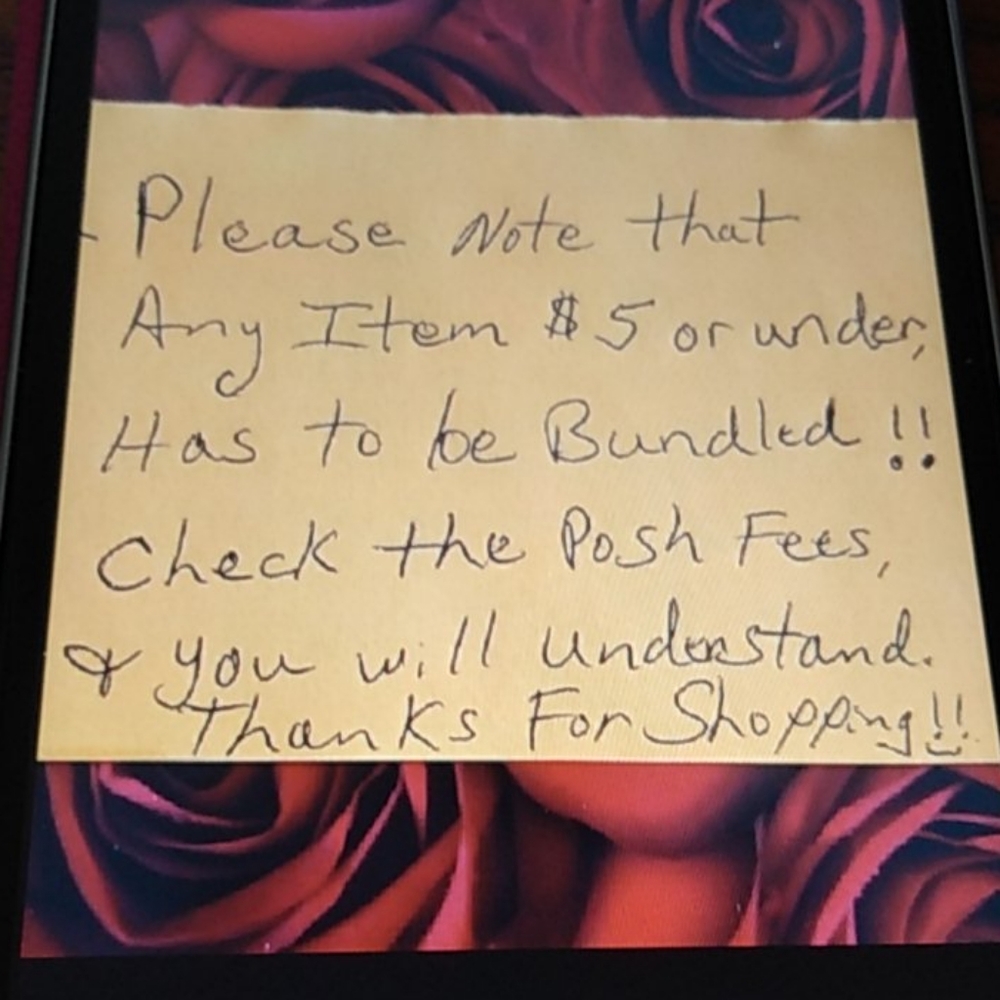 Please Note that
Any Item $5 or under,
Has to be Bundled !!
Check the Posh Fees,
& you will understand.
Thanks For Shopping!!